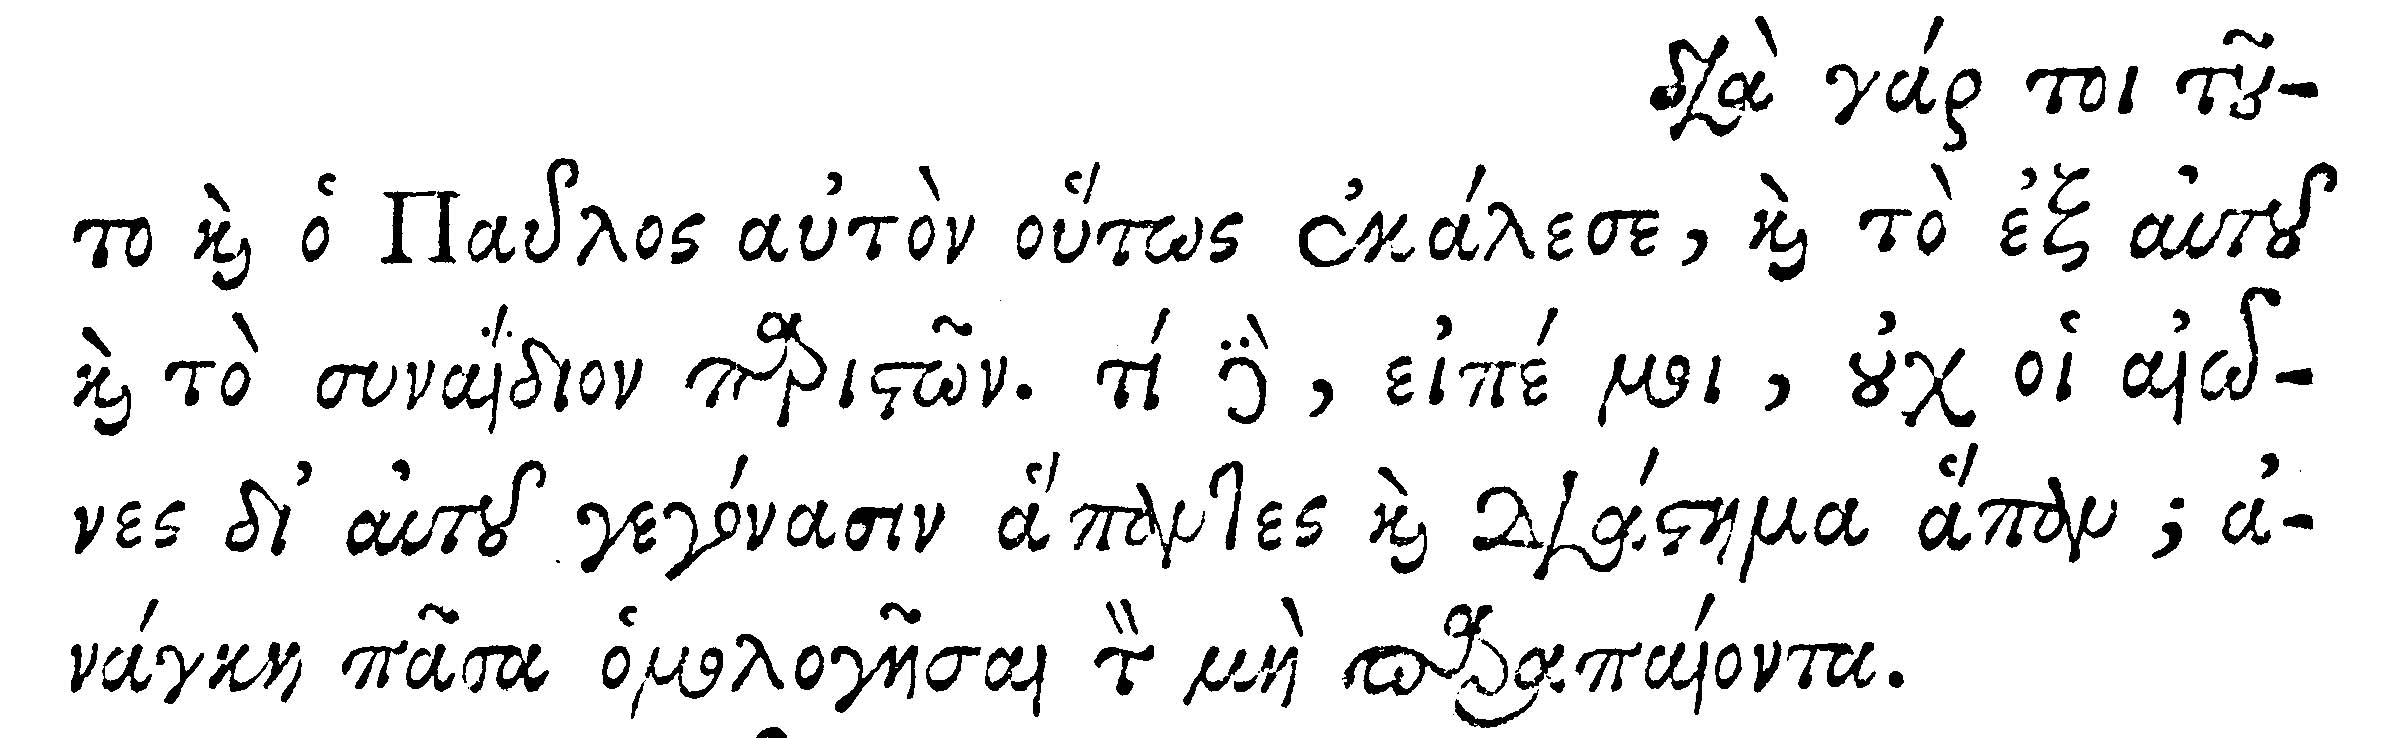 διὰ γάρ τοι τοῦ-
το καὶ ὁ Παῦλος αὐτὸν οὕτως ἐκάλεσε, καὶ τὸ ἐξ αὐτοῦ
καὶ τὸ συναΐδιον παριστῶν. τί δὲ, εἰπέ μοι, οὐχ οἱ αἰῶ-
νες δι᾽ αὐτοῦ γεγόνασιν ἅπαντες καὶ διάστημα ἅπαν; ἀ-
νάγκη πᾶσα ὁμολογῆσαι τὸν μὴ παραπαίοντα.